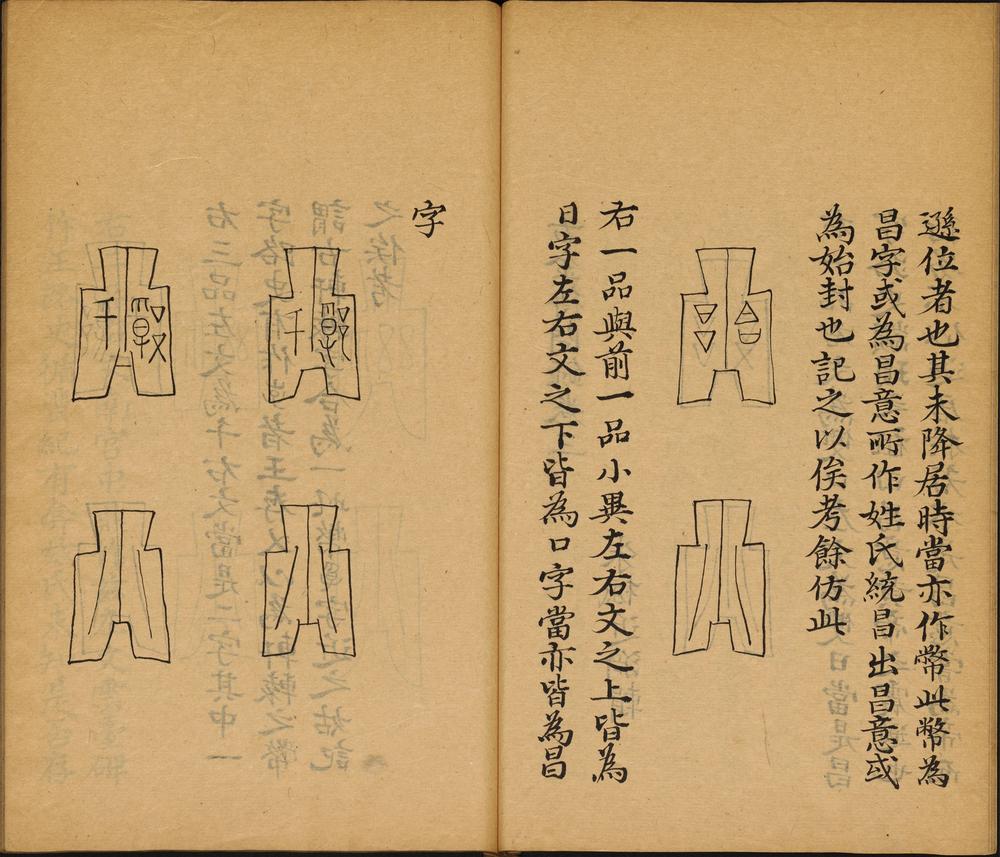 遜位者也其未降居時當亦作幣此幣為
昌字或為昌意所作姓氏統昌出昌意或
為始封也記之以俟考餘仿此
右一品與前一品小異左右文之上皆為
日字左右文之下皆為口字當亦皆為昌
字